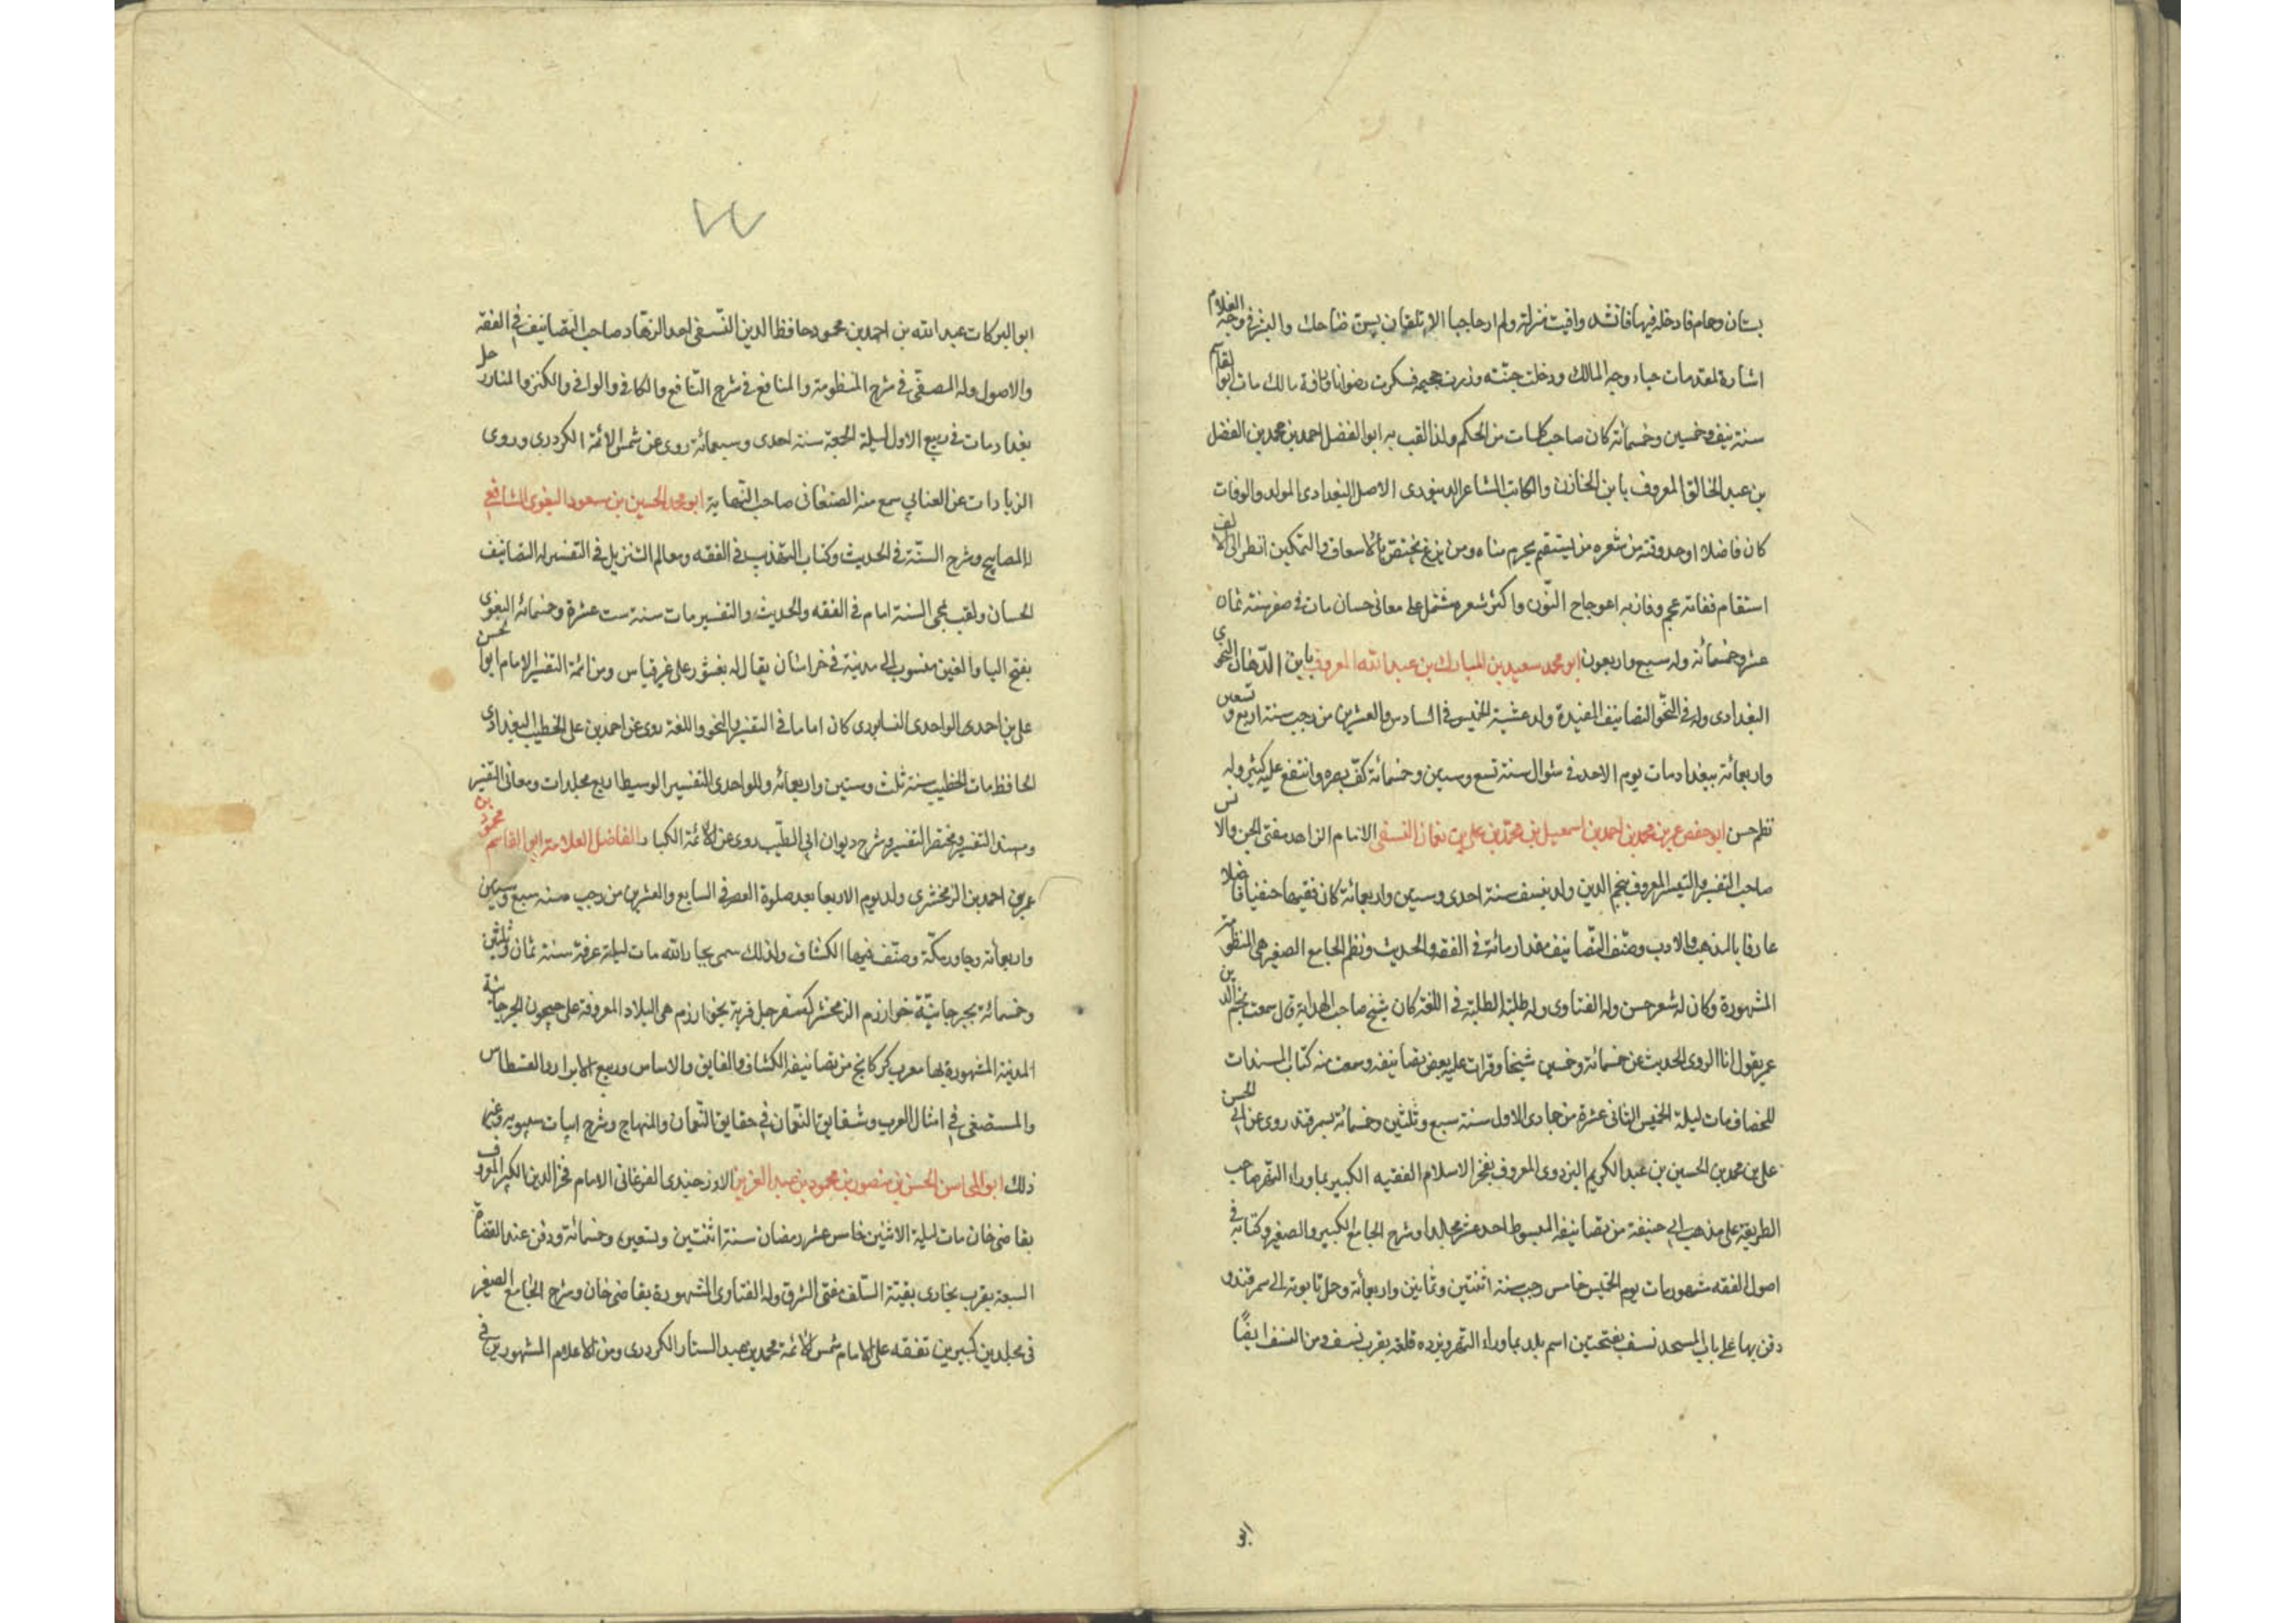 بستان وحمام فادخله فيها فانشد وافيت منزله ولم ار حاجبا الا تلقاني بسن ضاحك والبشر في وجه الغلام
اشارة لمقدمات حياء وجه المالك ودخلت جنته وزرت جحيمه فشكرت رضوانا ورافة مالك مات ابو القاسم
سنة نيف وخمسين وخمسمائة كان صاحب كلمات من الحكم ولذا لقب به ابو الفضل احمد بن محمد بن الفضل
بن عبد الخالق المعروف بابن الخازن والكاتب الشاعر الدينوري الاصل البغدادي المولد والوفات
كان فاضلا اوحد وقته من شعره من يستقم يحرم مناه ومن يزغ يختص بالاسعاف والتمكين انظر الى الالف
استقام ففاته عجم وفاز به اعوجاج النون واكثر شعره مشتمل على معاني حسان مات في صفر سنة ثمان
عشر وخمسمائة وله سبع واربعون ابو محمد سعيد بن المبارك بن عبد الله المعروف بابن الدهان النحوي
البغدادي وله في النحو التصانيف المفيدة ولد عشية الخميس في السادس والعشرين من رجب سنة اربع وتسعين
واربعمائة ببغداد مات يوم الاحد في شوال سنة تسع وستين وخمسمائة كف بصره وانتفع عليه كثير وله
نظم حسن ابو حفص عمر بن محمد بن احمد بن اسمعيل بن محمد بن علي بن نعمان النسفي الامام الزاهد مفتي الجن والانس
صاحب التفسير والتيسير المعروف بنجم الدين ولد بنسف سنة احدى وستين واربعمائة كان فقيها حنفيا فاضلا
عارفا بالمذهب والادب وصنف التصانيف مقدار مائة في الفقه والحديث ونظم الجامع الصغير هي المنظومة
المشهورة وكان له شعر حسن وله الفتاوى وله طلبة الطلبة في اللغة كان شيخ صاحب الهداية قال سمعت نجم الدين
عمر يقول انا اروي الحديث عن خمسمائة وخمسين شيخا وقرات عليه بعض تصانيفه وسمعت منه كتاب المسندات
للخصاف مات ليلة الخميس الثاني عشرة من جمادى الاول سنة سبع وثلثين وخمسمائة بسمرقند روى عن ابي الحسن
علي بن محمد بن الحسين بن عبد الكريم البزدوي المعروف بفخر الاسلام الفقيه الكبير بما وراء النهر صاحب
الطريقة على مذهب ابي حنيفة من تصانيفه المبسوط احد عشر مجلدا وشرح الجامع الكبير والصغير وكتابه في
اصول الفقه مشهور مات يوم الخميس خامس رجب سنة اثنتين وثمانين واربعمائة وحمل تابوته الى سمرقند و
دفن بها على باب المسجد نسف بفتحتين اسم بلد بما وراء النهر وبزده قلعة بقرب نسف ومن النسف ايضا
ابو
ابو البركات عبد الله بن احمد بن محمود حافظ الدين النسفي احد الزهاد صاحب التصانيف في الفقه
والاصول وله المصفى في شرح المنظومة والمنافع في شرح النافع والكافي والوافي والكنز والمنار دخل
بغداد مات في ربيع الاول ليلة الجمعة سنة احدى وسبعمائة روى عن شمس الائمة الكردري وروى
الزيادات عن العتابي سمع منه الصغناقي صاحب النهاية ابو محمد الحسين بن مسعود البغوي الشافعي
له المصابيح وشرح السنة في الحديث وكتاب التهذيب في الفقه ومعالم التنزيل في التفسير له التصانيف
الحسان ولقب بمحي السنة امام في الفقه والحديث والتفسير مات سنة ست عشرة وخمسمائة البغوي
بفتح الباء والغين منسوب الى مدينة في خراسان يقال له بغشور على غير قياس ومن ائمة التفسير الامام ابو الحسن
علي بن احمد الواحدي النسابوري كان اماما في التفسير والنحو واللغة روى عن احمد بن علي الخطيب البغدادي
الحافظ مات الخطيب سنة ثلث وستين واربعمائة وللواحدي التفسير الوسيط اربع مجلدات ومعاني التفسير
ومسند التفسير ومختصر التفسير وشرح ديوان ابي الطيب روى عن الائمة الكبار الفاضل العلامة ابو القاسم محمود بن
عمر بن احمد بن الزمخشري ولد يوم الاربعا بعد صلوة العصر في السابع والعشرين من رجب سنة سبع وستين
واربعمائة وجاور بمكة وصنف فيها الكشاف ولذلك سمى بجار الله مات ليلة عرفة سنة ثمان وثلثين
وخمسمائة بجرجانية خوارزم الزمخشر كسفرجل قرية بخوارزم هي البلاد المعروفة على جيحون الجرجانية
المدينة المشهورة بها معرب كركانج من تصانيفه الكشاف والفايق والاساس وربيع الابرار والقسطاس
والمستصفى في امثال العرب وشقايق النعمان في حقايق النعمان والمنهاج وشرح ابيات سيبويه وغير
ذلك ابو المحاسن الحسن بن منصور بن محمود بن عبد العزيز الاوزجندي الفرغاني الامام فخر الدين الكبير المعروف
بقاضي خان مات ليلة الاثنين خامس عشر رمضان سنة اثنتين وتسعين وخمسمائة ودفن عند القضاة
السبعة بقرب بخارى بقية السلف مفتي الشرق وله الفتاوى المشهورة بقاضي خان وشرح الجامع الصغير
في مجلدين كبيرين تفقه على الامام شمس الائمة محمد بن عبد الستار الكردري ومن الاعلام المشهورين في